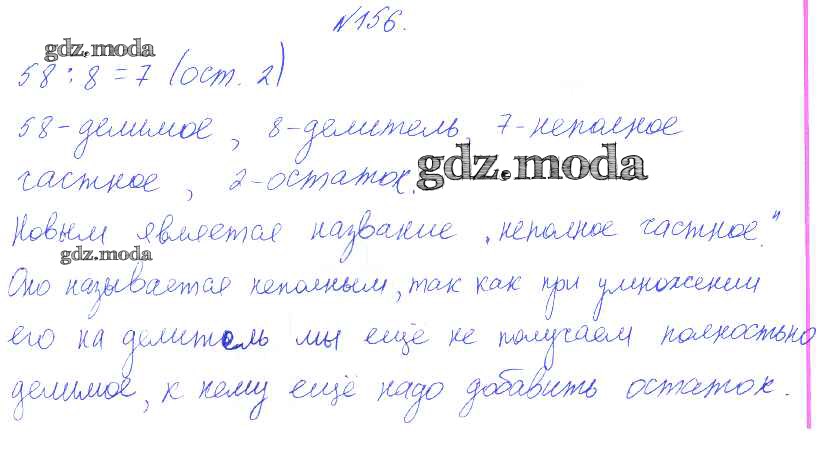 №156.
gdz.moda
58 : 8 = 7 (ост. 2)
58-делимое, 8-делитель, 7-неполное
частное, 2-остаток.
gdz.moda
Новым является название „неполное частное."
gdz.moda
Оно называется неполным, так как при умножении
его на делитель мы ещё не получаем полностью
делимое, к нему ещё надо добавить остаток.